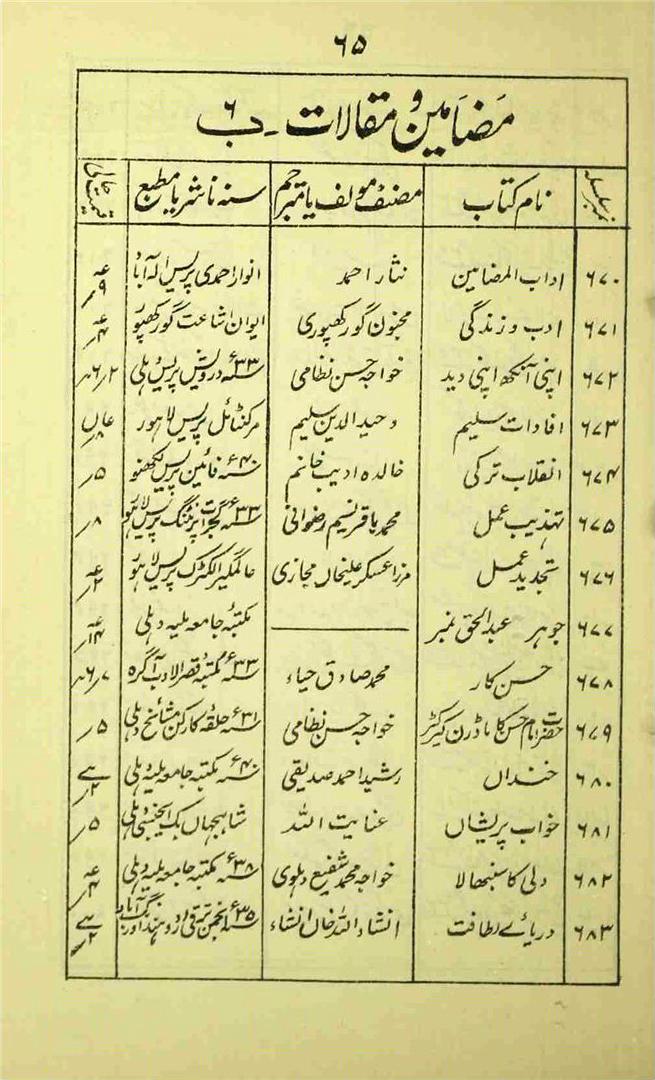 ۶۵
مضامین و مقالات ۔ ب ۶
نمبر سلسلہ نام کتاب مصنف مولف یا مترجم سنہ ناشر یا مطبع
۶۷۰ اداب المضامین نثار احمد انوار احمدی پریس الہ آباد
۶۷۱ ادب و زندگی مجنون گورکھپوری ایوان اشاعت گورکھپور
۶۷۲ اپنی آنکھ اپنی دید خواجہ حسن نظامی ۳۳ء درویش پریس دہلی
۶۷۳ افادات سلیم وحید الدین سلیم مرکنٹائل پریس لاہور
۶۷۴ انقلاب ترکی خالدہ ادیب خانم ۴۰ء فائین پریس لکھنؤ ۵ر
۶۷۵ تہذیب عمل محمد باقر نسیم رضوانی ۳۳ء گجرات پرنٹنگ پریس لاہور ۸ر
۶۷۶ تجدید عمل مرزا عسکر علیخاں مجازی عالمگیر الکٹرک پریس لاہور
۶۷۷ جوہر عبدالحق نمبر ــــــ مکتبۂ جامعہ ملیہ دہلی
۶۷۸ حسن کار محمد صادق ضیاء ۳۳ء مکتبہ قصر الادب آگرہ
۶۷۹ حضرت امام حسن کا ماڈرن کیرکٹر خواجہ حسن نظامی ۳۱ء حلقہ کارکن مشائخ دہلی ۵ر
۶۸۰ خنداں رشید احمد صدیقی ۴۰ء مکتبہ جامعہ ملیہ دہلی
۶۸۱ خواب پریشاں عنایت اللہ شاہجہاں بک ایجنسی دہلی ۵ر
۶۸۲ دلی کا سنبھالا خواجہ محمد شفیع دہلوی ۳۸ء مکتبہ جامعہ ملیہ دہلی
۶۸۳ دریائے لطافت انشاء اللہ خاں انشاء ۳۵ء انجمن ترقی اردو ہند اورنگ آباد